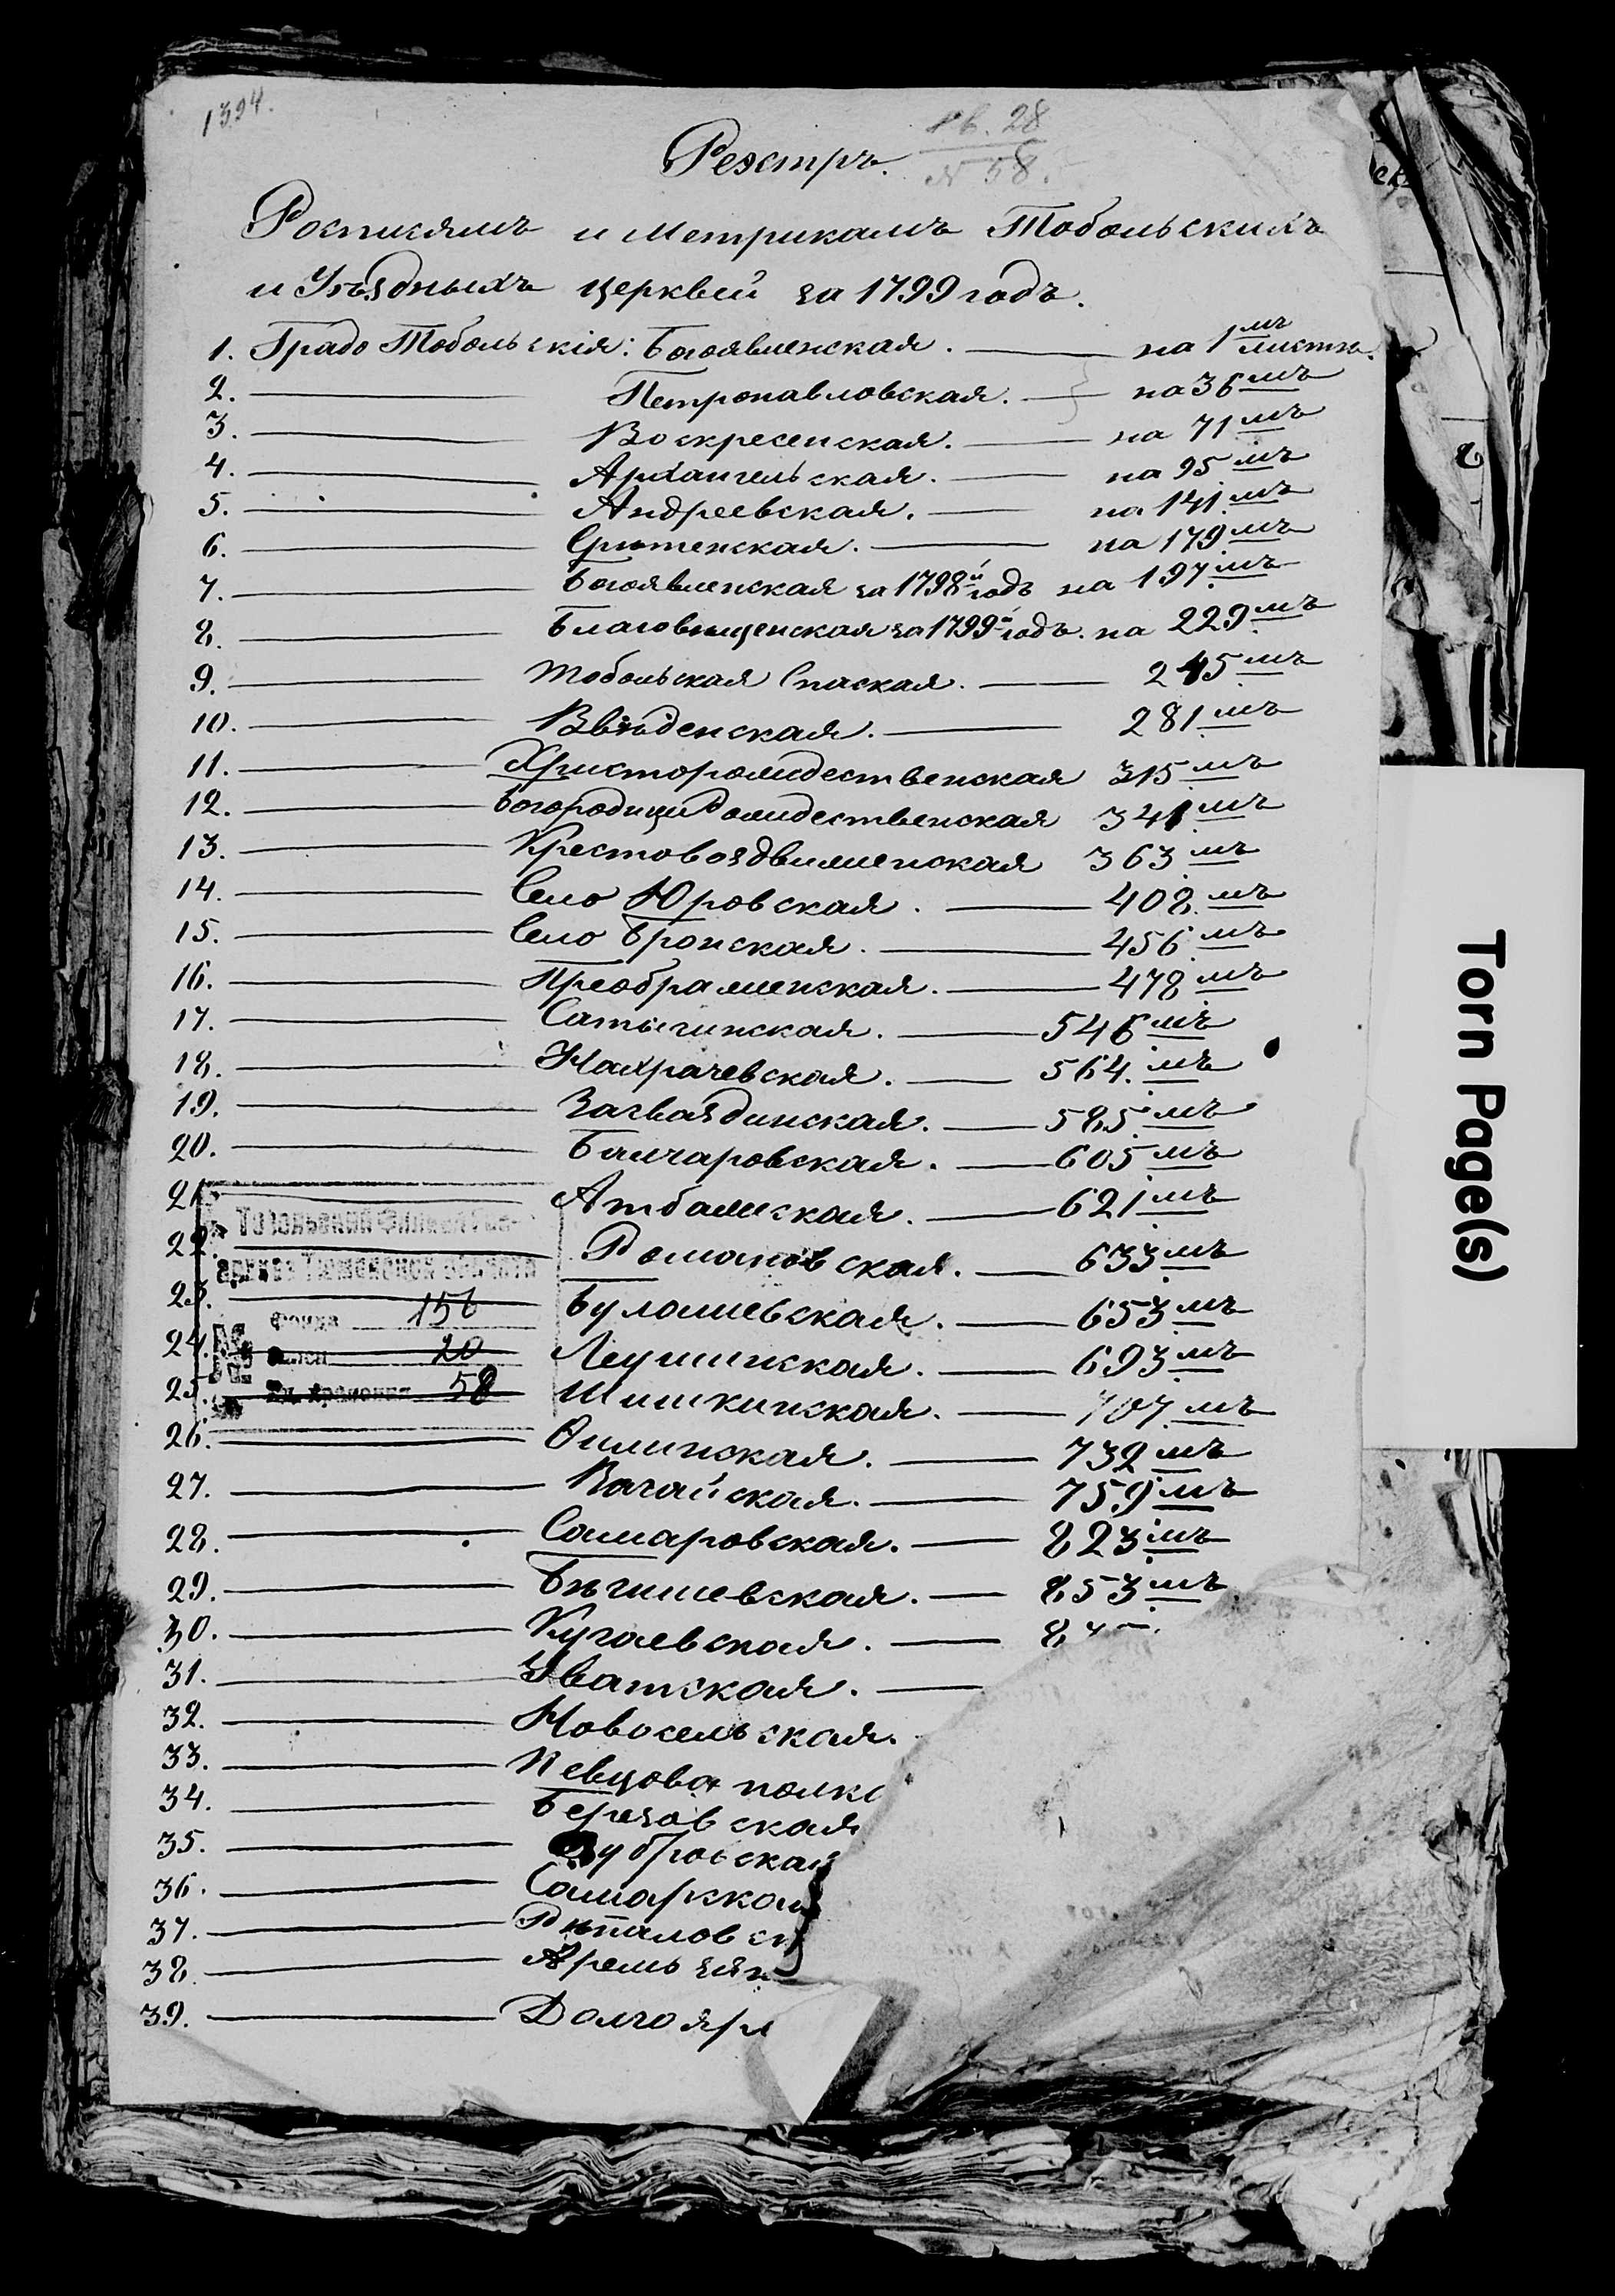 1394.
Св. 28
Реэстръ.
N 58.
Росписямъ и Метрикамъ Тобольскихъ
и Уѣздныхъ церквей за 1799 годъ.
1. Градо Тобольскія: Богоявленская. на 1мъ листѣ.
2. Петропавловская. на 36мъ
3. Воскресенская. на 71мъ
4. Архангельская. на 95мъ
5. Андреевская. на 141мъ
6. Срѣтенская. на 179мъ
7. Богоявленская за 1798й годъ на 197мъ
8. Благовѣщенская за 1799й годъ. на 229мъ
9. Тобольская Спаская. 245мъ
10. Ввѣденская. 281мъ
11. Христорождественская 315мъ
12. БогородицеРождественская 341мъ
13. Крестовоздвиженская 363мъ
14. Село Юровская. 408мъ
15. Село Бронская. 456мъ
16. Преображенская. 478мъ
17. Сатыгинская. 546мъ
18. Нахрачевская. 564.мъ
19. Загваздинская. 585мъ
20. Балчаровская. 605мъ
21. Атбашская. 621мъ
22. Романовская. 633мъ
23. Булашевская. 653мъ
24. Леушинская. 693мъ
25. Шишкинская. 707мъ
26. Ошлинская. 732мъ
27. Вагайская. 759мъ
28. Самаровская. 823мъ
29. Бѣгишевская. 853мъ
30. Кугаевская. 8
31. Уватская.
32. Новосельская.
33. Певцова полк
34. Березовская
35. убровская
36. Самарска
37. Рѣполовск
38. Аремьзян
39. Долгояр
Тобольский Филиал Гос-
архива Тюменской области
Фонд 156
№ Описи 20
Ед. хранения 58
Torn Page(s)